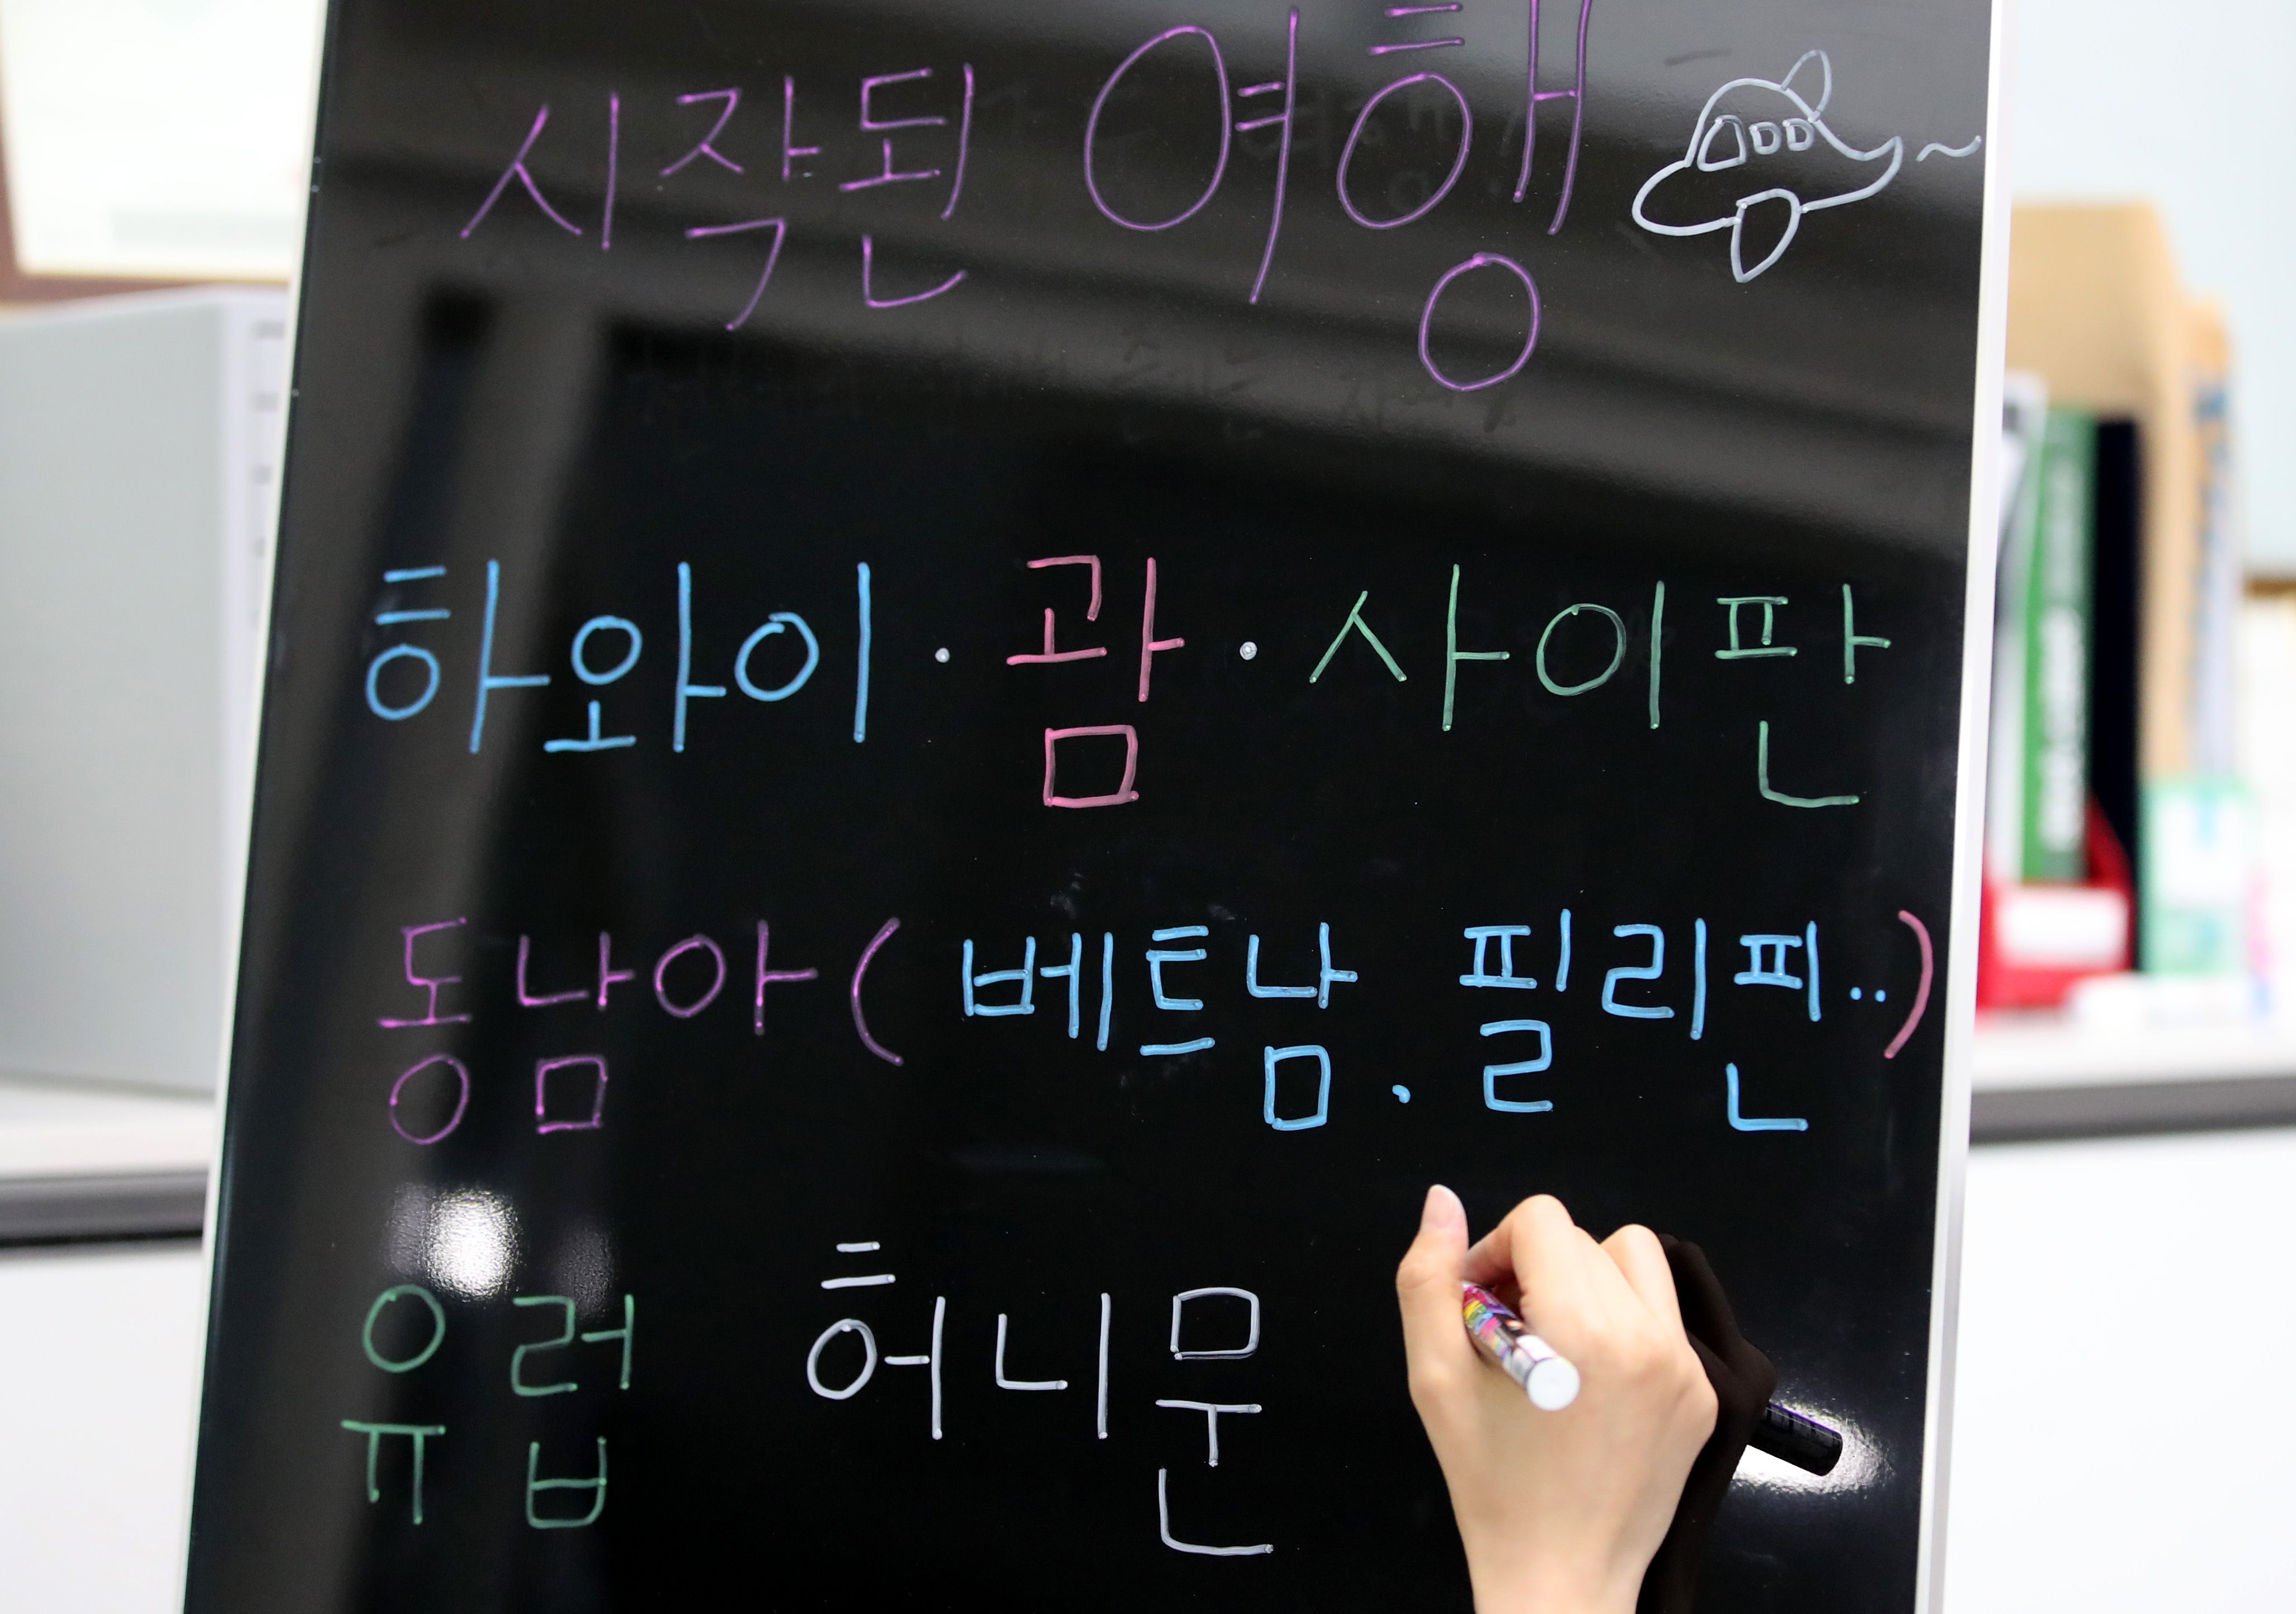 시작된 여행
하와이 · 괌 · 사이판
동남아 (베트남. 필리핀..)
유럽 허니문